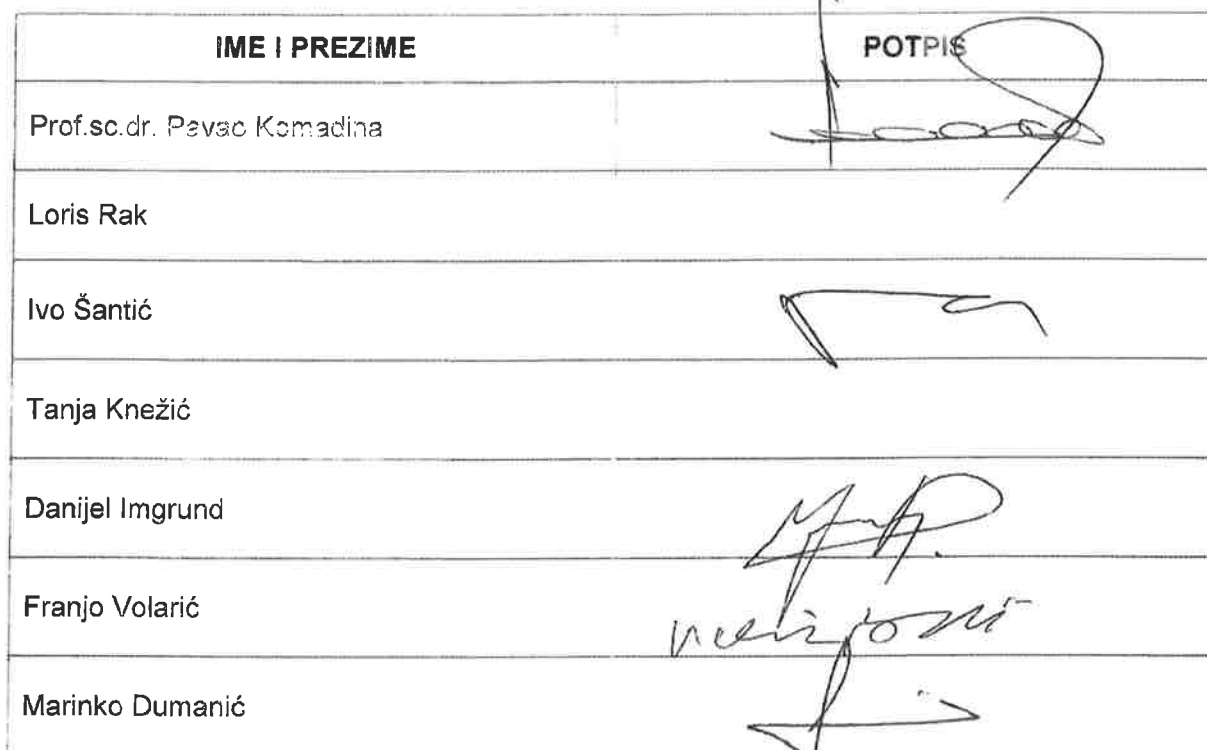 IME I PREZIME POTPIS
Prof.sc.dr. Pavao Komadina
Loris Rak
Ivo Šantić
Tanja Knežić
Danijel Imgrund
Franjo Volarić
Marinko Dumanić